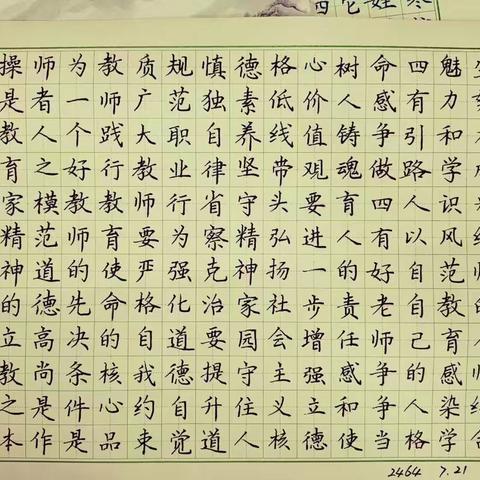 魅力和学识风范教育感染学
四有引路人以自自己的人格
命感争做四有好老师争争当
树人铸魂育人的责任感和使
心价值观要进一步增强立德
格低线带头弘扬社会主义核
德素养坚守精神家园守住人
慎独自律省察克治要提升道
规范职业行为强化道德自觉
质广大教师要严格自我约束
教师践行教育使命的核心品
为一个好教师的先决条件是
师者人之模范道德高尚是作
操是教育家精神的立教之本
2464 7.21